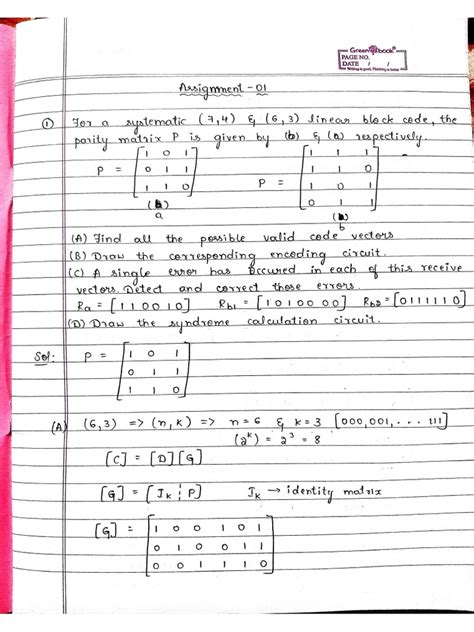 Greenbook
PAGE NO.
DATE / /
Assignment - 01
(1) For a systematic (7,4) & (6,3) linear block code, the
parity matrix P is given by (b) & (a) respectively.
P = [1 0 1
0 1 1
1 1 0]
(a)
a
P = [1 1 1
1 1 0
1 0 1
0 1 1]
(b)
b
(A) Find all the possible valid code vectors
(B) Draw the corresponding encoding circuit.
(C) A single error has occured in each of this receive
vectors. Detect and correct those errors.
Ra = [1 1 0 0 1 0] Rb1 = [1 0 1 0 0 0 0] Rb2 = [0 1 1 1 1 1 0]
(D) Draw the syndrome calculation circuit.
Sol: P = [1 0 1
0 1 1
1 1 0]
(A) (6,3) => (n,k) => n=6 & k=3 [000,001,... 111]
(2^k) = 2^3 = 8
[C] = [D][G]
[G] = [I_k ¦ P] I_k → identity matrix
[G] = [1 0 0 1 0 1
0 1 0 0 1 1
0 0 1 1 1 0]